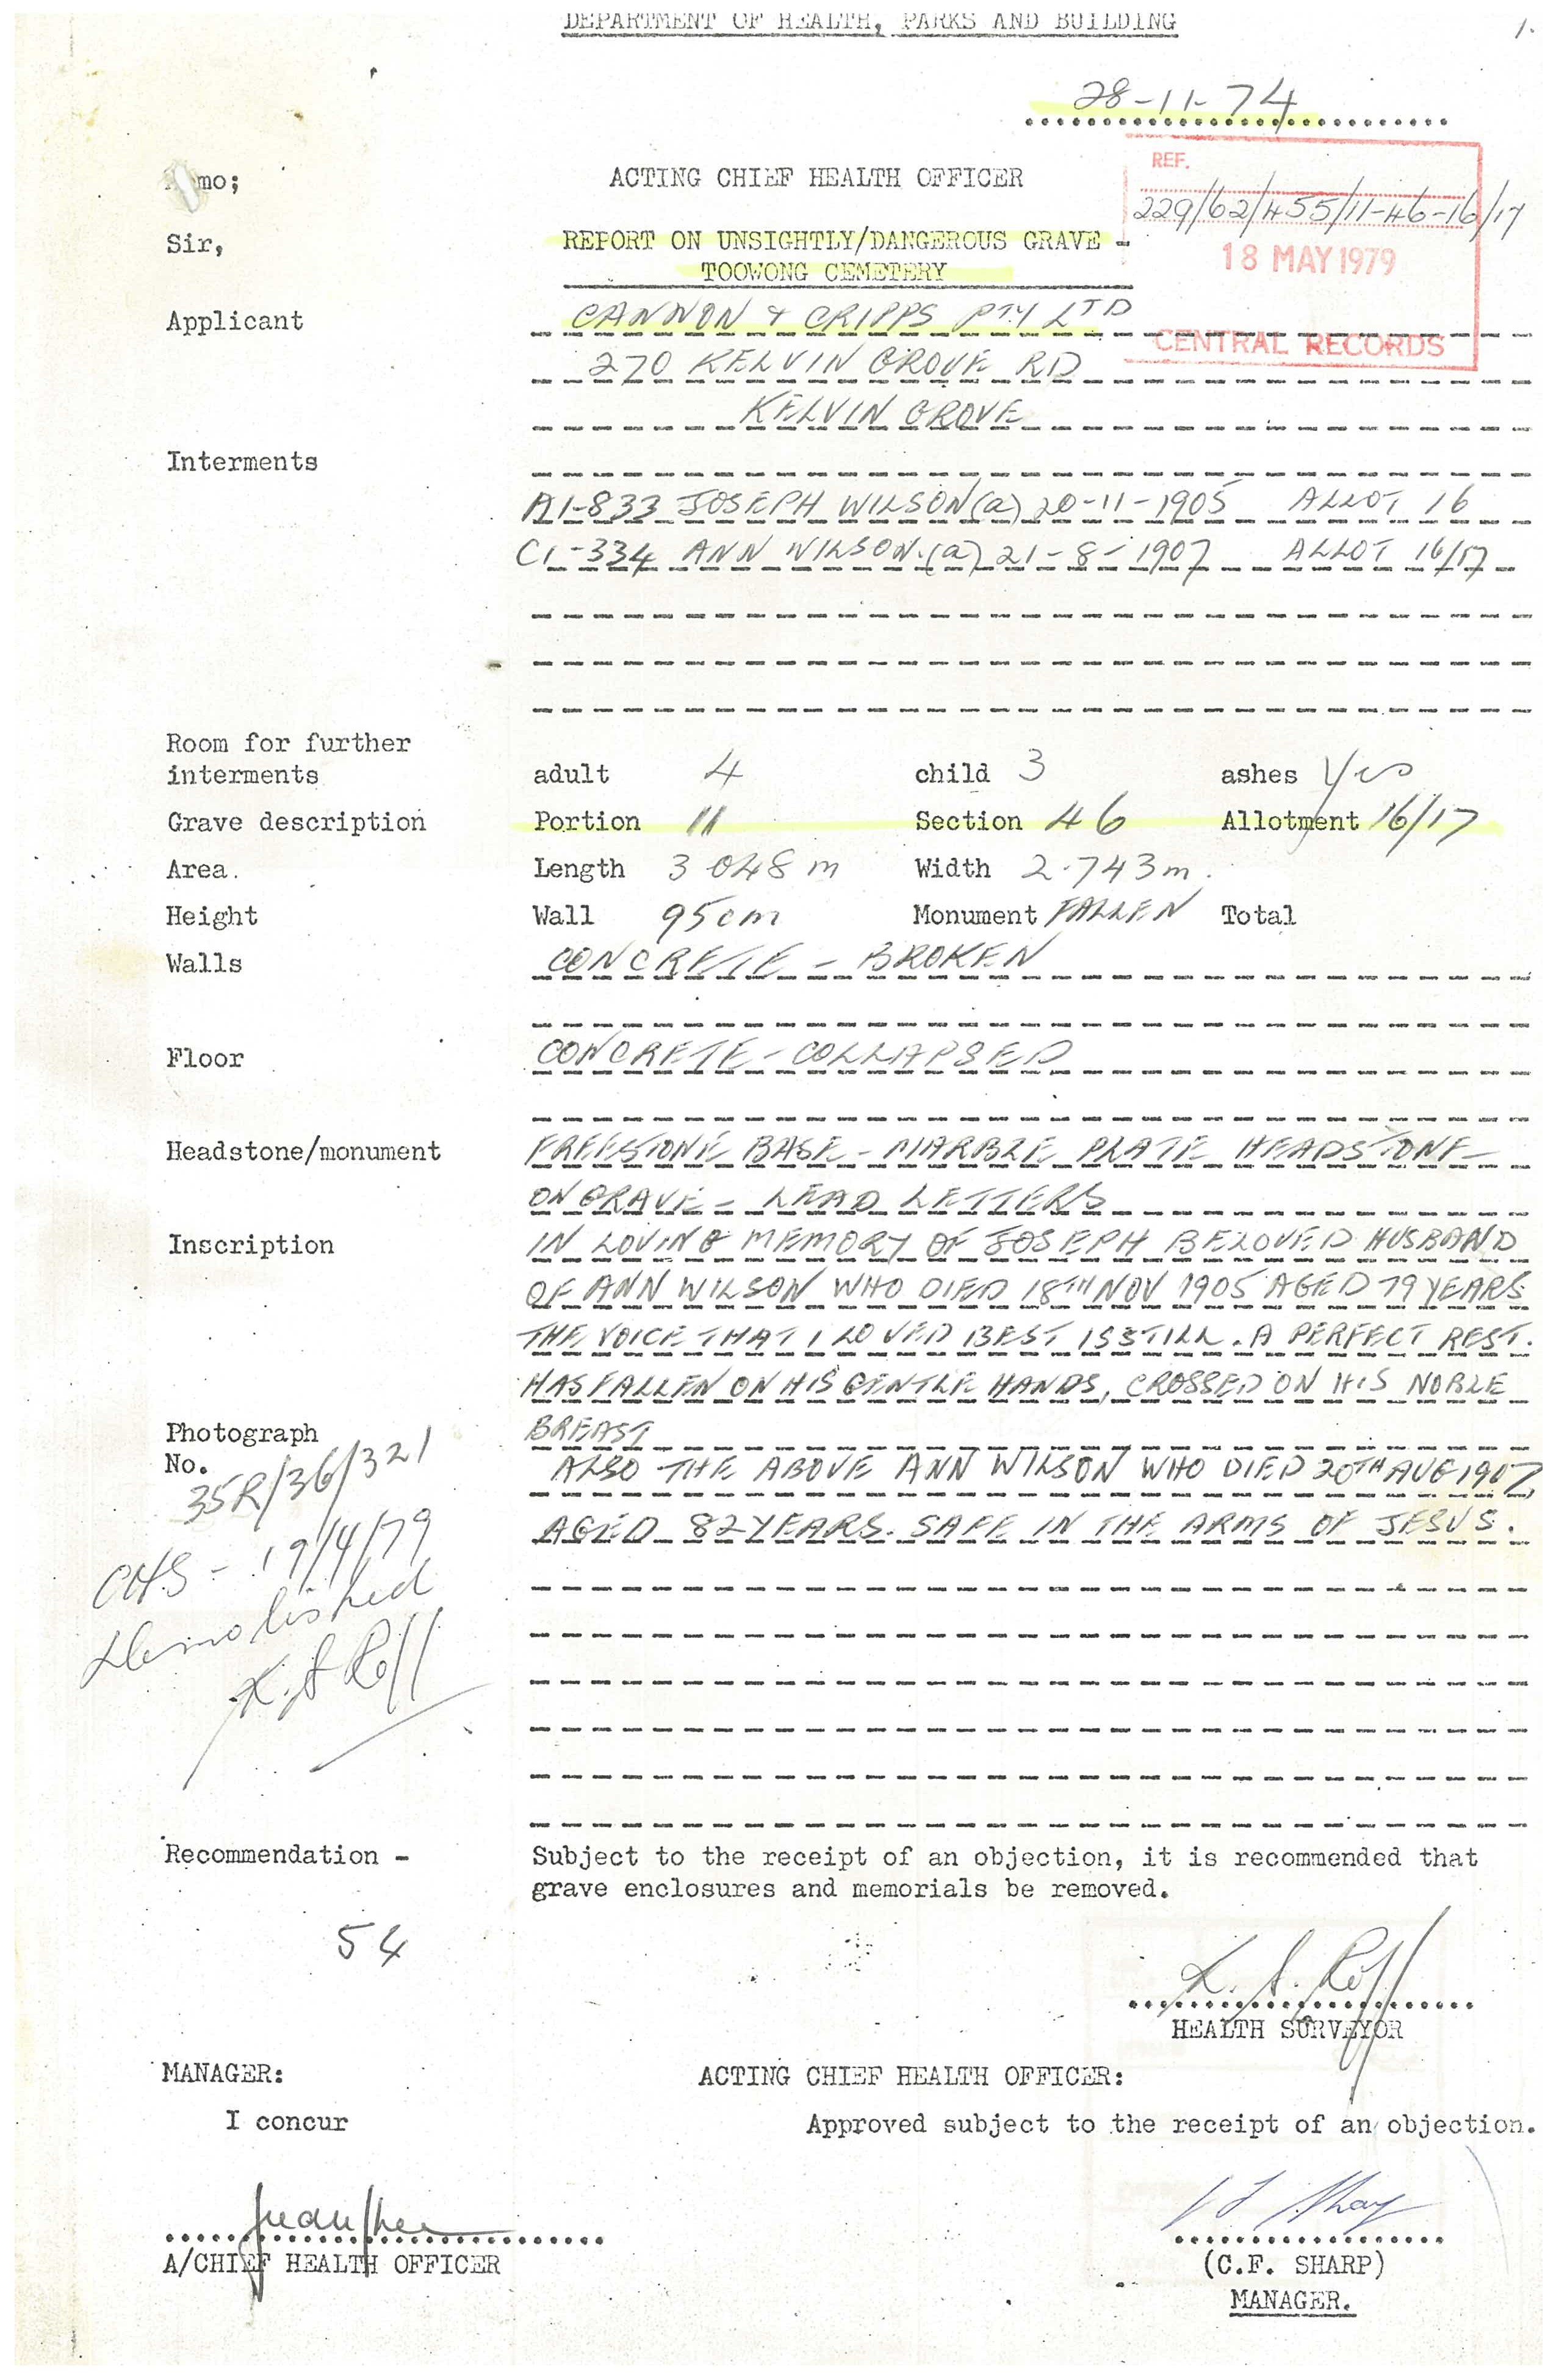 DEPARTMENT OF HEALTH, PARKS AND BUILDING
1.
28-11-74
mo;
ACTING CHIEF HEALTH OFFICER
REF.
229/62/455/11-46-16/17
Sir,
REPORT ON UNSIGHTLY/DANGEROUS GRAVE -
TOOWONG CEMETERY
18 MAY 1979
CENTRAL RECORDS
Applicant CANNON & CRIPPS PTY LTD
270 KELVIN GROVE RD
KELVIN GROVE
Interments
A1-833 JOSEPH WILSON (a) 20-11-1905 ALLOT 16
C1-334 ANN WILSON. (a) 21-8-1907 ALLOT 16/17
Room for further
interments adult 4 child 3 ashes Yes
Grave description Portion 11 Section 46 Allotment 16/17
Area. Length 3 048 m Width 2.743m.
Height Wall 95cm Monument FALLEN Total
Walls CONCRETE - BROKEN
Floor CONCRETE - COLLAPSED
Headstone/monument FREESTONE BASE - MARBLE PLATE HEADSTONE -
ON GRAVE - LEAD LETTERS
Inscription IN LOVING MEMORY OF JOSEPH BELOVED HUSBAND
OF ANN WILSON WHO DIED 18TH NOV 1905 AGED 79 YEARS
THE VOICE THAT I LOVED BEST IS STILL. A PERFECT REST.
HAS FALLEN ON HIS GENTLE HANDS, CROSSED ON HIS NOBLE
BREAST
ALSO THE ABOVE ANN WILSON WHO DIED 20TH AUG 1907,
AGED 82 YEARS. SAFE IN THE ARMS OF JESUS.
Photograph
No.
35R/36/321
CHS - 19/4/79
Demolished
K. S Roff
Recommendation - Subject to the receipt of an objection, it is recommended that
grave enclosures and memorials be removed.
54
K. S. Roff
HEALTH SURVEYOR
MANAGER: ACTING CHIEF HEALTH OFFICER:
I concur Approved subject to the receipt of an objection.
A/CHIEF HEALTH OFFICER
(C.F. SHARP)
MANAGER.